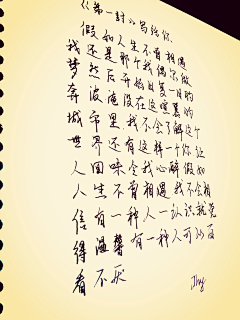 《第一封》写给你.
假如人生不曾相遇
我还是那个我偶尔做
梦然后开始日复一日的
奔波淹没在这喧嚣的
城市里.我不会了解这个
世界还有这样一个你让
人回味令我心醉假如
人生不曾相遇我不会相
信有一种人一认识就觉
得温馨有一种人可以百
看不厌